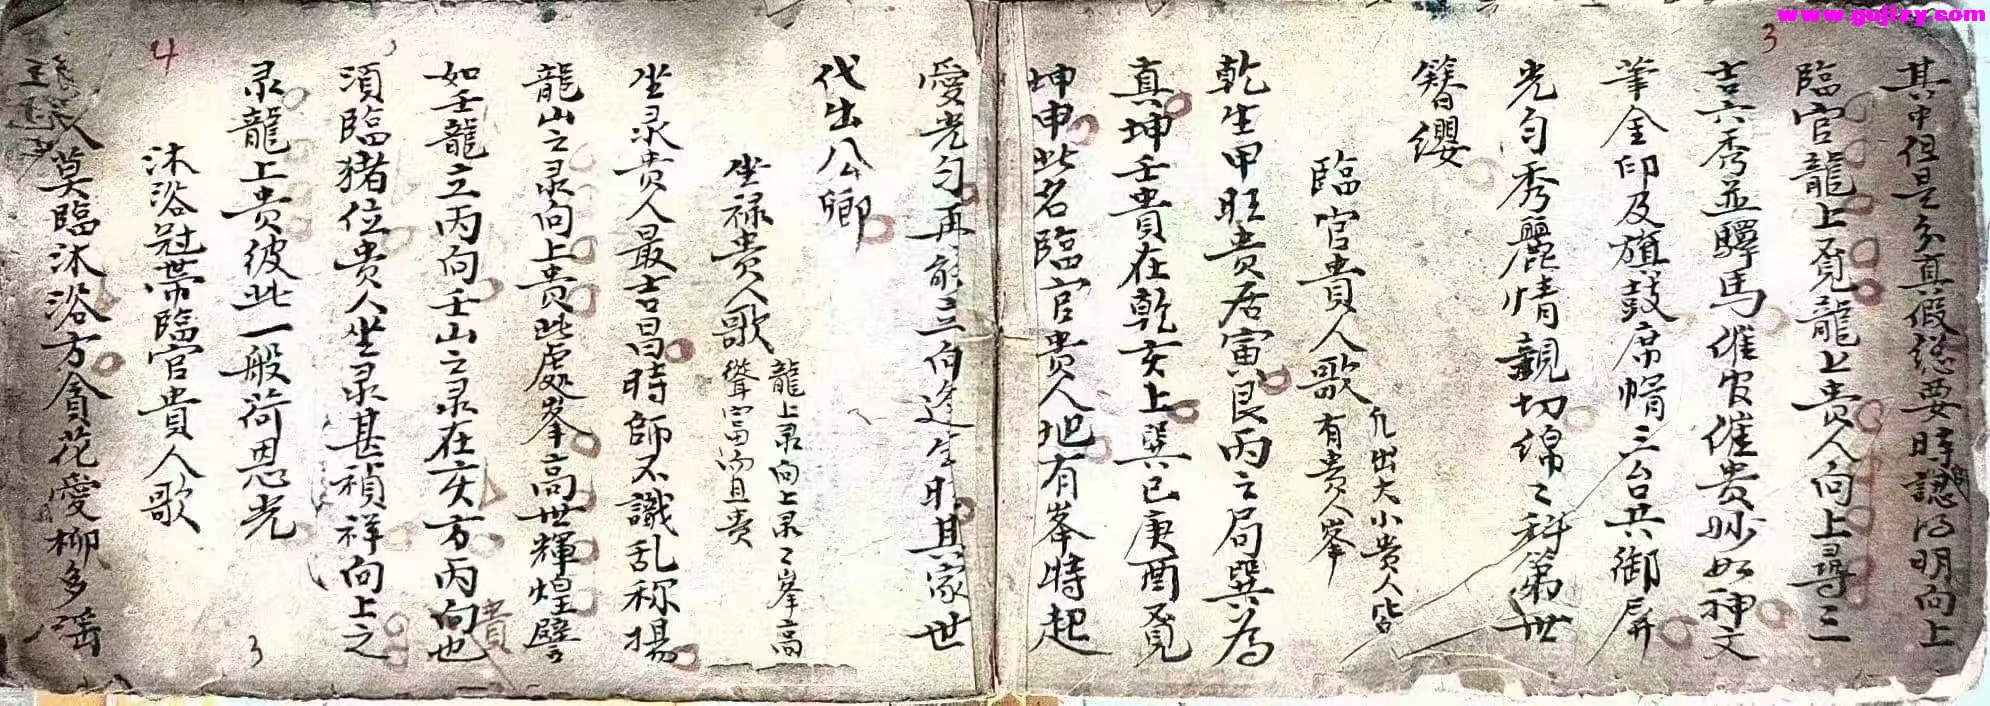 www.gujizy.com
3
其中但是分真假總要時師認得明向上
臨官龍上覓龍上貴人向上尋三
吉六秀並驛馬催官催貴妙如神文
筆金印及旗鼓席帽三台共御屏
光勻秀麗情親切綿〻科第世
簪纓
臨官貴人歌
凡出大小貴人皆
有貴人峯
乾生甲旺貴居寅艮丙之局巽為
真坤壬貴在乾亥上巽巳庚酉覓
坤申此名臨官貴人地有峯特起
愛光勻再龍三百逢生旺其家世
代出公卿
坐祿貴人歌
龍上录向上录〻峯高
聳富而且貴
坐录貴人最吉昌時師不識乱称揚
龍山之录向上貴此處峯高世輝煌譬
如壬龍立丙向壬山之录在亥方丙向也
貴
須臨猪位貴人坐录甚禎祥向上之
录龍上貴彼此一般荷恩光
3
沐浴冠帶臨官貴人歌
4
莫臨沐浴方貪花愛柳多